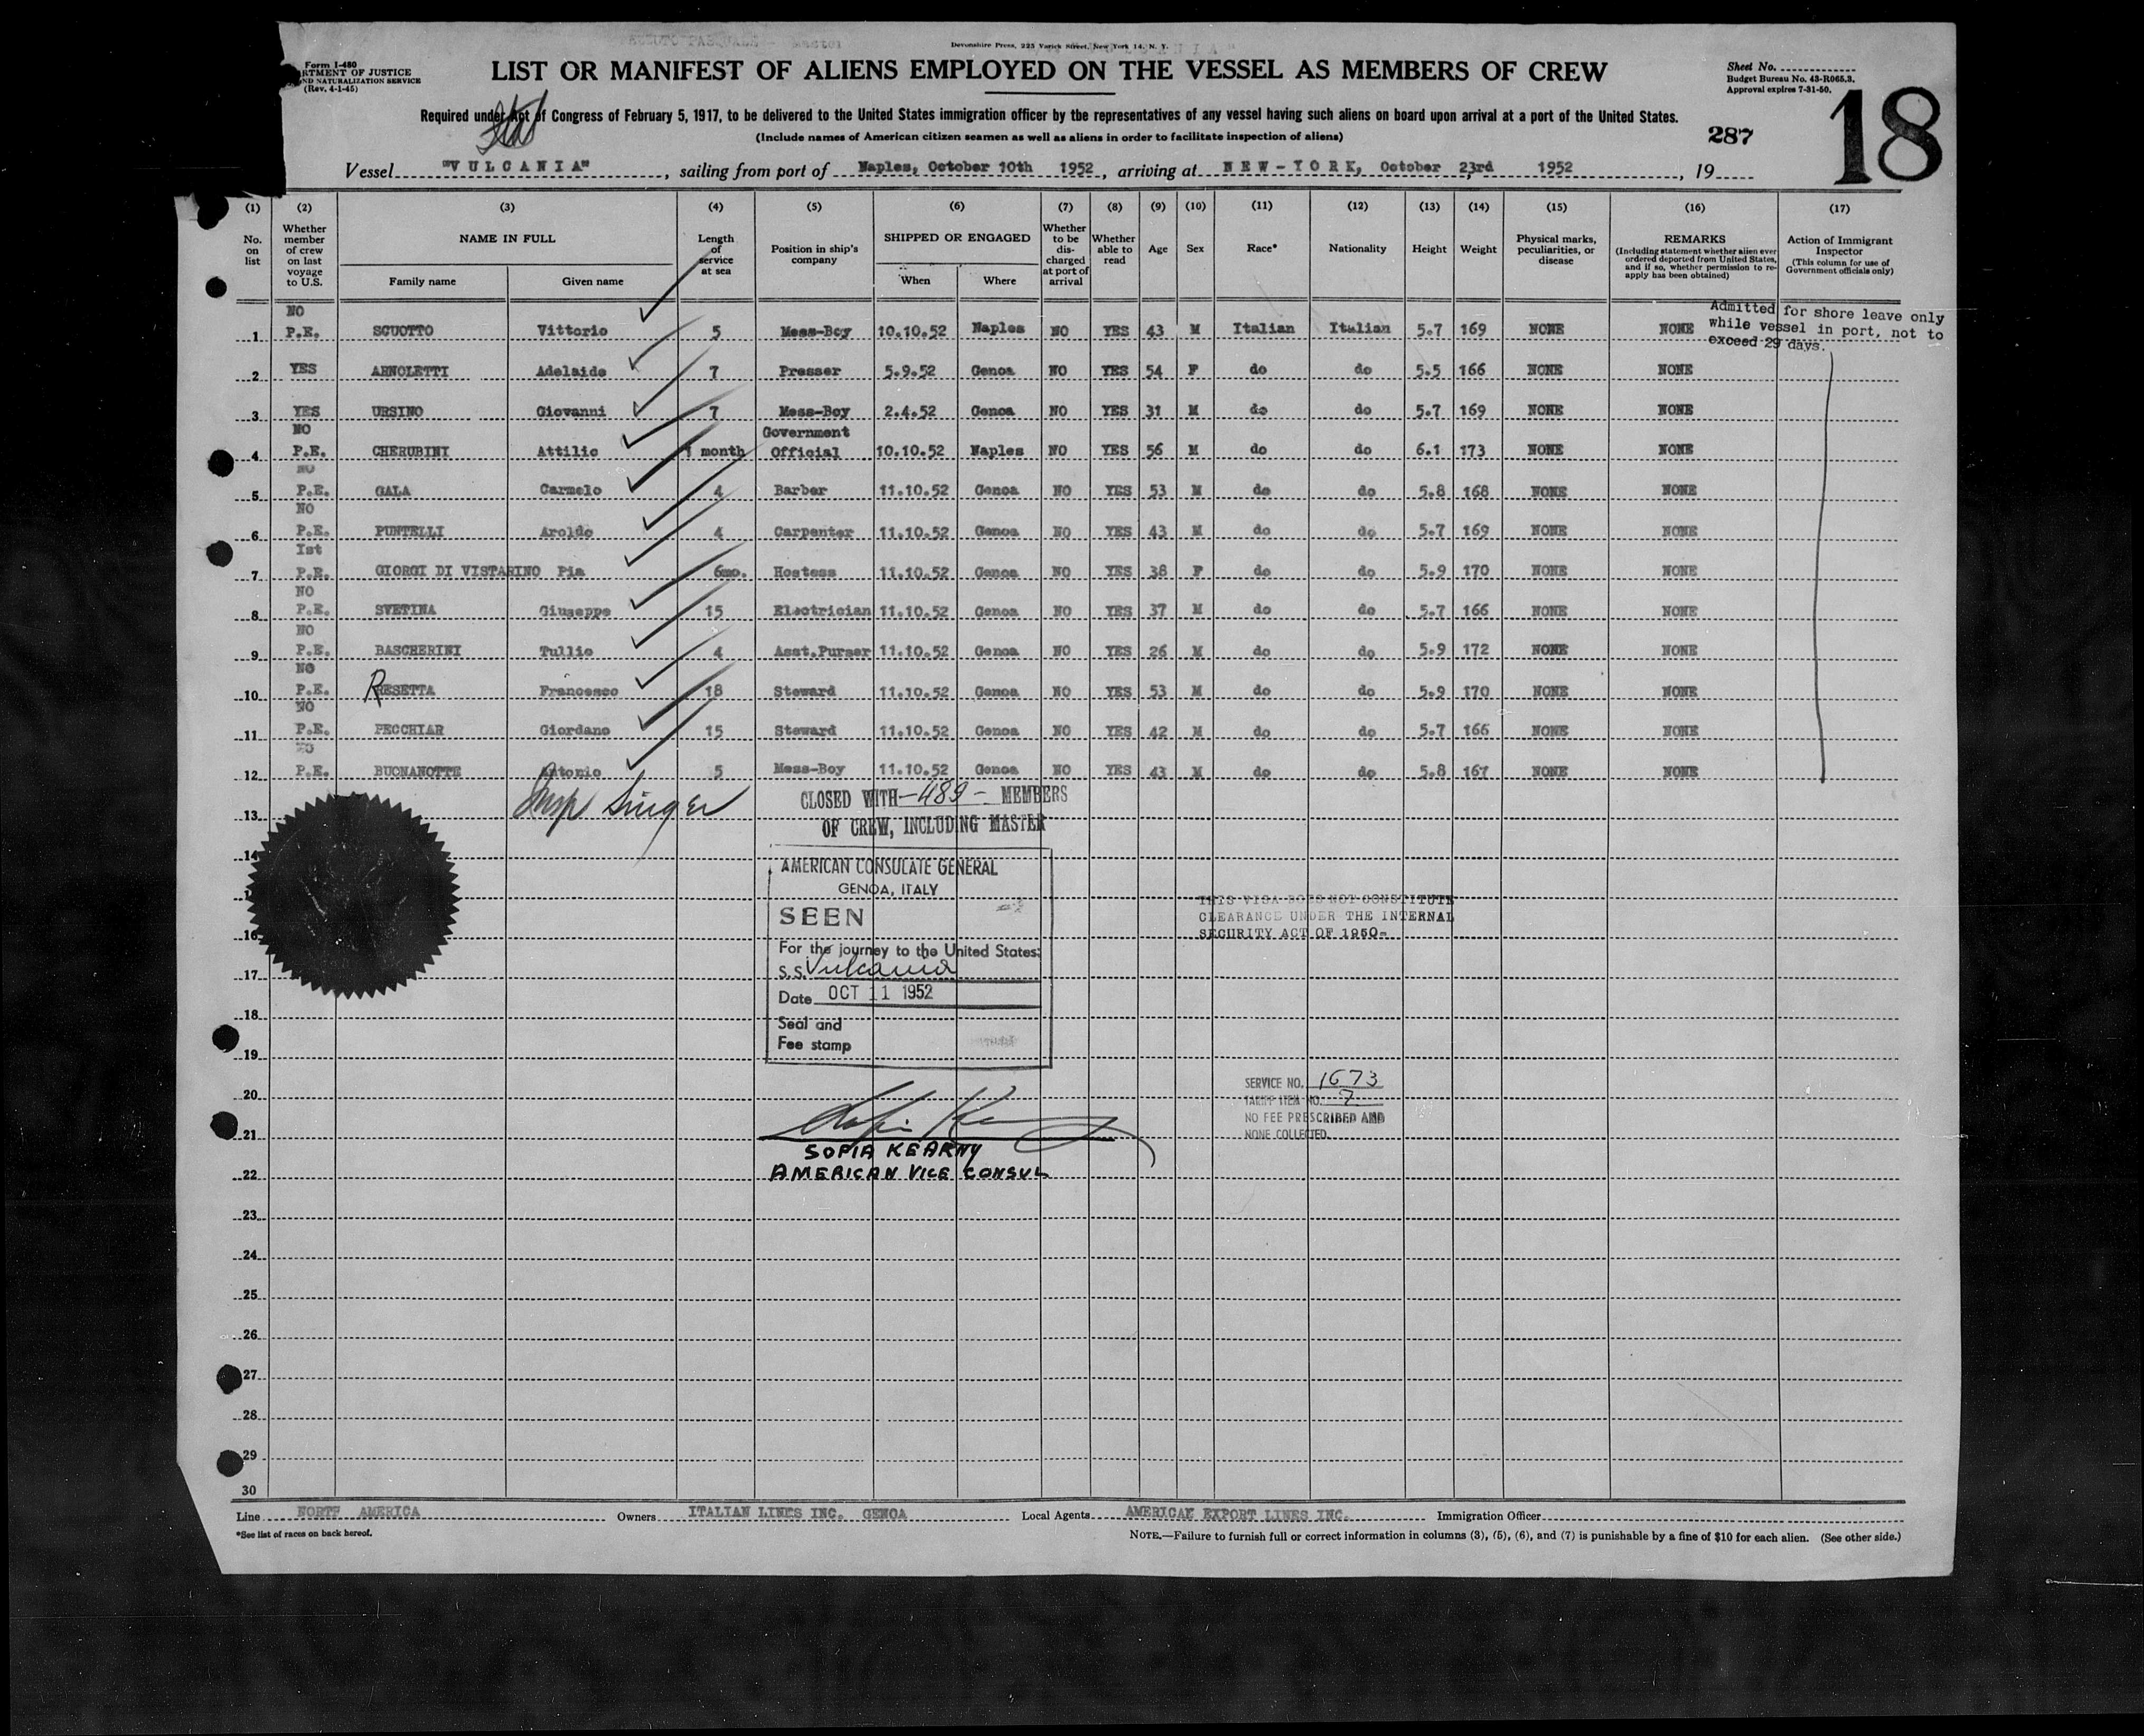 Devonshire Press, 225 Varick Street, New York 14, N. Y.
Form I-480
RTMENT OF JUSTICE
ND NATURALIZATION SERVICE
(Rev. 4-1-45)
LIST OR MANIFEST OF ALIENS EMPLOYED ON THE VESSEL AS MEMBERS OF CREW
Sheet No.
Budget Bureau No. 43-R065.3.
Approval expires 7-31-50.
18
Required under Act of Congress of February 5, 1917, to be delivered to the United States immigration officer by the representatives of any vessel having such aliens on board upon arrival at a port of the United States.
(Include names of American citizen seamen as well as aliens in order to facilitate inspection of aliens)
287
Vessel "VULCANIA", sailing from port of Naples, October 10th 1952, arriving at NEW-YORK, October 23rd 1952, 19
(1) (2) (3) (4) (5) (6) (7) (8) (9) (10) (11) (12) (13) (14) (15) (16) (17)
No. on list
Whether member of crew on last voyage to U.S.
NAME IN FULL
Family name
Given name
Length of service at sea
Position in ship's company
SHIPPED OR ENGAGED
When
Where
Whether to be discharged at port of arrival
Whether able to read
Age
Sex
Race*
Nationality
Height
Weight
Physical marks, peculiarities, or disease
REMARKS
(Including statement whether alien ever ordered deported from United States, and if so, whether permission to reapply has been obtained)
Action of Immigrant Inspector
(This column for use of Government officials only)
Admitted for shore leave only
while vessel in port, not to
exceed 29 days.
NO
1 P.E. SCUOTTO Vittorio 5 Mess-Boy 10.10.52 Naples NO YES 43 M Italian Italian 5.7 169 NONE NONE
2 YES ARNOLETTI Adelaide 7 Presser 5.9.52 Genoa NO YES 54 F do do 5.5 166 NONE NONE
3 YES URSINO Giovanni 7 Mess-Boy 2.4.52 Genoa NO YES 31 M do do 5.7 169 NONE NONE
NO Government
4 P.E. CHERUBINI Attilio 1 month Official 10.10.52 Naples NO YES 56 M do do 6.1 173 NONE NONE
NO
5 P.E. GALA Carmelo 4 Barber 11.10.52 Genoa NO YES 53 M do do 5.8 168 NONE NONE
NO
6 P.E. PUNTELLI Aroldo 4 Carpenter 11.10.52 Genoa NO YES 43 M do do 5.7 169 NONE NONE
Ist
7 P.E. GIORGI DI VISTARINO Pia 6mo. Hostess 11.10.52 Genoa NO YES 38 F do do 5.9 170 NONE NONE
NO
8 P.E. SVETINA Giuseppe 15 Electrician 11.10.52 Genoa NO YES 37 M do do 5.7 166 NONE NONE
NO
9 P.E. BASCHERINI Tullio 4 Asst.Purser 11.10.52 Genoa NO YES 26 M do do 5.9 172 NONE NONE
NO
10 P.E. RESETTA Francesco 18 Steward 11.10.52 Genoa NO YES 53 M do do 5.9 170 NONE NONE
NO
11 P.E. PECCHIAR Giordano 15 Steward 11.10.52 Genoa NO YES 42 M do do 5.7 166 NONE NONE
NO
12 P.E. BUONANOTTE Antonio 5 Mess-Boy 11.10.52 Genoa NO YES 43 M do do 5.8 167 NONE NONE
Insp Singer
CLOSED WITH -489- MEMBERS
13
OF CREW, INCLUDING MASTER
14
AMERICAN CONSULATE GENERAL
GENOA, ITALY
SEEN
THIS VISA DOES NOT CONSTITUTE
CLEARANCE UNDER THE INTERNAL
SECURITY ACT OF 1950-
16
For the journey to the United States:
17
S.S. Vulcania
Date OCT 11 1952
18
Seal and
Fee stamp
19
SERVICE NO. 1673
TARIFF ITEM NO. 7
NO FEE PRESCRIBED AND
NONE COLLECTED.
20
21
SOFIA KEARNY
22
AMERICAN VICE CONSUL
23
24
25
26
27
28
29
30
Line NORTH AMERICA Owners ITALIAN LINES INC. GENOA Local Agents AMERICAN EXPORT LINES INC. Immigration Officer
*See list of races on back hereof.
NOTE.—Failure to furnish full or correct information in columns (3), (5), (6), and (7) is punishable by a fine of $10 for each alien. (See other side.)